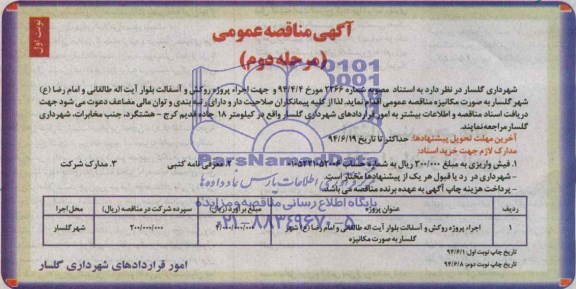 نوبت اول
آگهی مناقصه عمومی
(مرحله دوم)
شهرداری گلسار در نظر دارد به استناد مصوبه شماره ۲۲۶۶ مورخ ۹۴/۴/۴ و جهت اجراء پروژه روکش و آسفالت بلوار آیت اله طالقانی و امام رضا (ع)
شهر گلسار به صورت مکانیزه مناقصه عمومی اقدام نماید. لذا از کلیه پیمانکاران صلاحیت دار و دارای رتبه بندی و توان مالی مضاعف دعوت می شود جهت
دریافت اسناد مناقصه و اطلاعات بیشتر به امور قراردادهای شهرداری گلسار واقع در کیلومتر ۱۸ جاده قدیم کرج - هشتگرد، جنب مخابرات، شهرداری
گلسار مراجعه نمایند.
آخرین مهلت تحویل پیشنهادها: حداکثر تا تاریخ ۹۴/۶/۱۹
مدارک لازم جهت خرید اسناد:
۱. فیش واریزی به مبلغ ۳۰۰/۰۰۰ ریال به شماره حساب ۲. معرفی نامه کتبی ۳. مدارک شرکت
- شهرداری در رد یا قبول هر یک از پیشنهادها مختار است.
- پرداخت هزینه چاپ آگهی به عهده برنده مناقصه می باشد.
ردیف عنوان پروژه مبلغ برآورد (ریال) سپرده شرکت در مناقصه (ریال) محل اجرا
۱ اجراء پروژه روکش و آسفالت بلوار آیت اله طالقانی و امام رضا (ع) شهر ۴/۰۰۰/۰۰۰/۰۰۰ ۲۰۰/۰۰۰/۰۰۰ شهر گلسار
گلسار به صورت مکانیزه
تاریخ چاپ نوبت اول: ۹۴/۶/۱
تاریخ چاپ نوبت دوم: ۹۴/۶/۸
امور قراردادهای شهرداری گلسار
ParsNamadData
پایگاه اطلاع رسانی مناقصه و مزایده
۰۲۱-۸۸۳۴۹۶۷۰-۵